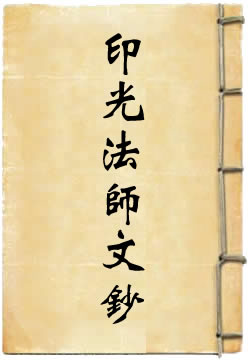 印光法師文鈔